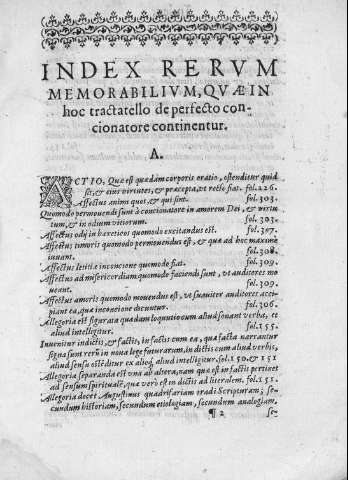 INDEX RERVM
MEMORABILIVM, QVÆ IN
hoc tractatello de perfecto con-
cionatore continentur.
A.
ACTIO, Quæ est quædam corporis oratio, ostenditur quid
sit, & eius virtutes, & præcepta, vt recte fiat. fol. 226.
Affectus animi quot, & qui sint. fol. 303.
Quomodo permouendi sunt à concionatore in amorem Dei, & virtu
tum, & in odium vitiorum. fol. 303.
Affectus odij in hæreticos quomodo excitandus est. fol. 307.
Affectus timoris quomodo permouendus est, & quæ ad hoc maximè
iuuant. fol. 308.
Affectus letitiæ in concione quomodo fiat. fol. 309.
Affectus ad misericordiam quomodo faciendi sunt, vt auditores mo
ueant. fol. 309.
Affectus amoris quomodo mouendus est, vt suauiter auditores acci-
piant ea, quæ in concione dicuntur. fol. 306.
Allegoria est figurata quædam loquutio cum aliud sonant verba, et
aliud intelligitur. fol. 155.
Inuenitur in dictis, & factis, in factis cum ea, quæ facta narrantur
signa sunt rerū in noua lege futurarum, in dictis cum aliud verbis,
aliud sensu ostēditur ex alioq, aliud intelligitur. fol. 150. & 151
Allegoria separanda est vna ab altera, nam quæ est in factis pertinet
ad sensum spiritualē, quæ verò est in dictis ad literalem. fol. 151.
Allegoria docet Augustinus quadrifariam tradi Scripturam; se-
cundum historiam, secundum etiologiam, secundum analogiam,
¶ 2 se-